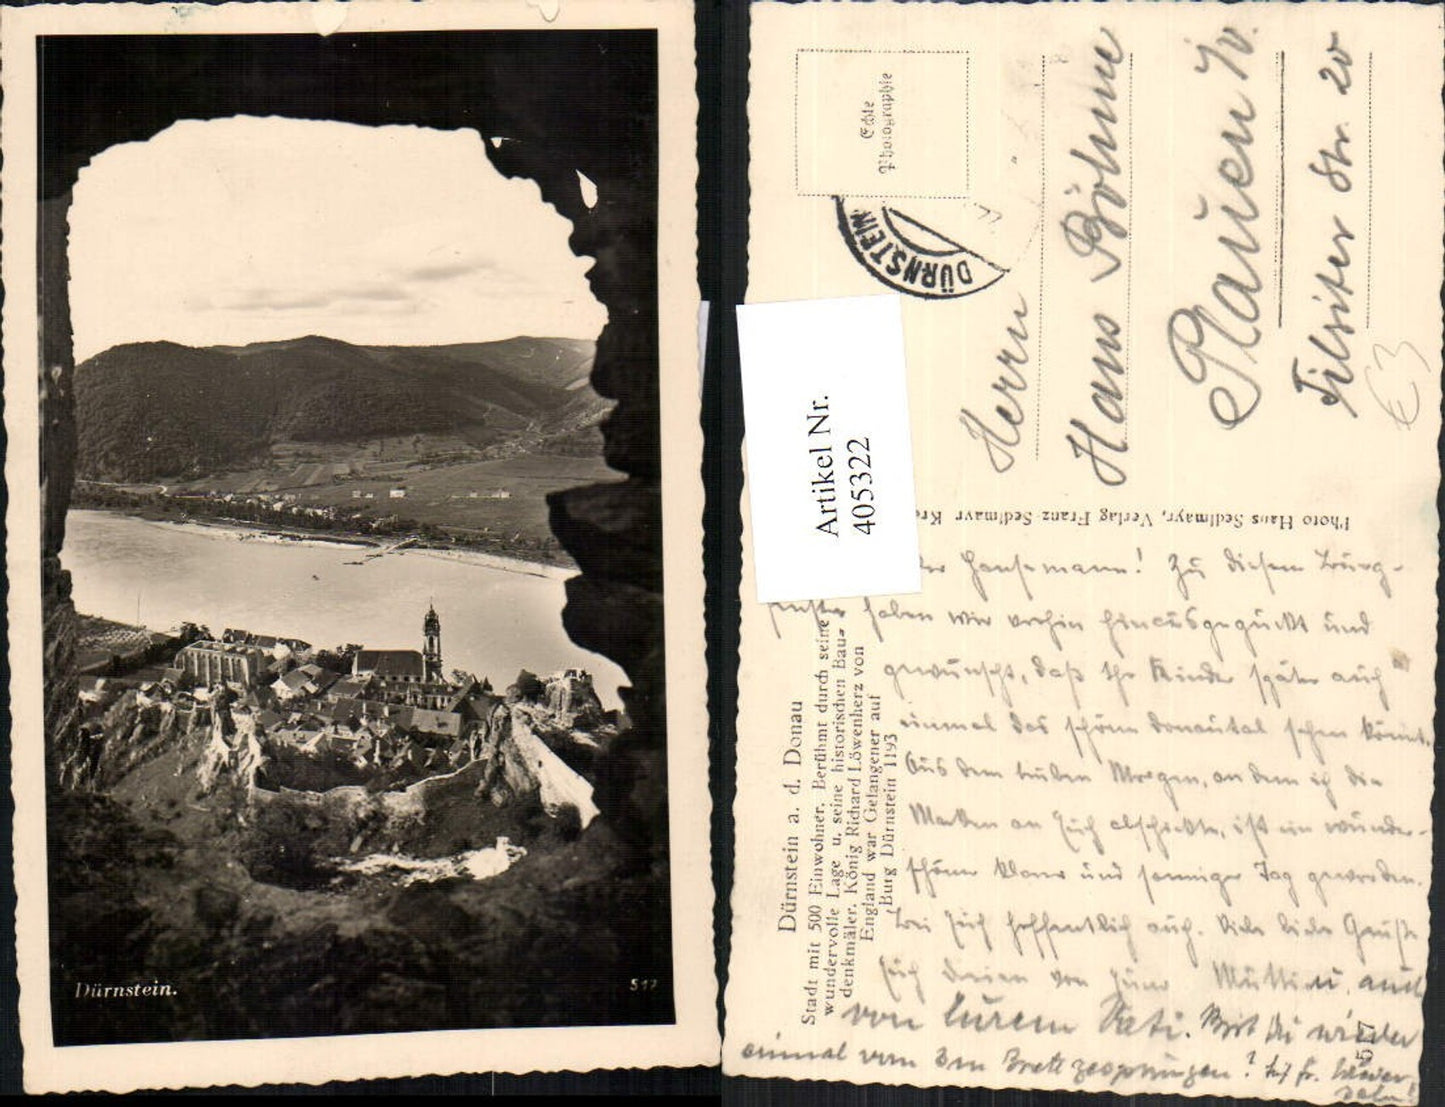 Dürnstein.
517
Echte
Photographie
DÜRNSTEIN
Herrn
Hans Böhme
Plauen i/V.
Tilsiter Str. 20
€3
Artikel Nr.
405322
Photo Haus Sedlmayr, Verlag Franz Sedlmayr Kre
Dürnstein a. d. Donau
Stadt mit 500 Einwohner. Berühmt durch seine
wundervolle Lage u. seine historischen Bau-
denkmäler. König Richard Löwenherz von
England war Gefangener auf
Burg Dürnstein 1193
Hansemann! Zu diesem Burg-
fenster haben wir vorhin hinausgeguckt und
gewünscht, daß Ihr Kinder später auch
einmal das schöne Donautal sehen könnt.
Aus dem trüben Morgen, an dem ich die
Marken an Euch abschickte, ist ein wunder-
schöner klarer und sonniger Tag geworden.
Bei Euch hoffentlich auch. Viele liebe Grüße
Euch dreien von Eurer Mutti u. auch
von Eurem Vati. Bist Du wieder
einmal vom 3m Brett gesprungen?
517